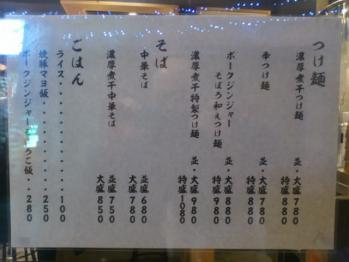 つけ麺
濃厚煮干つけ麺
並・大盛 780
特盛 880
辛つけ麺
並・大盛 780
特盛 880
ポークジンジャー
そぼろ和えつけ麺
並・大盛 880
特盛 980
濃厚煮干特製つけ麺
並・大盛 980
特盛 1080
そば
中華そば
並盛 680
大盛 780
濃厚煮干中華そば
並盛 750
大盛 850
ごはん
ライス・・・・・・・・・・100
焼豚マヨ飯・・・・・・・250
ポークジンジャーそぼろご飯・・・280